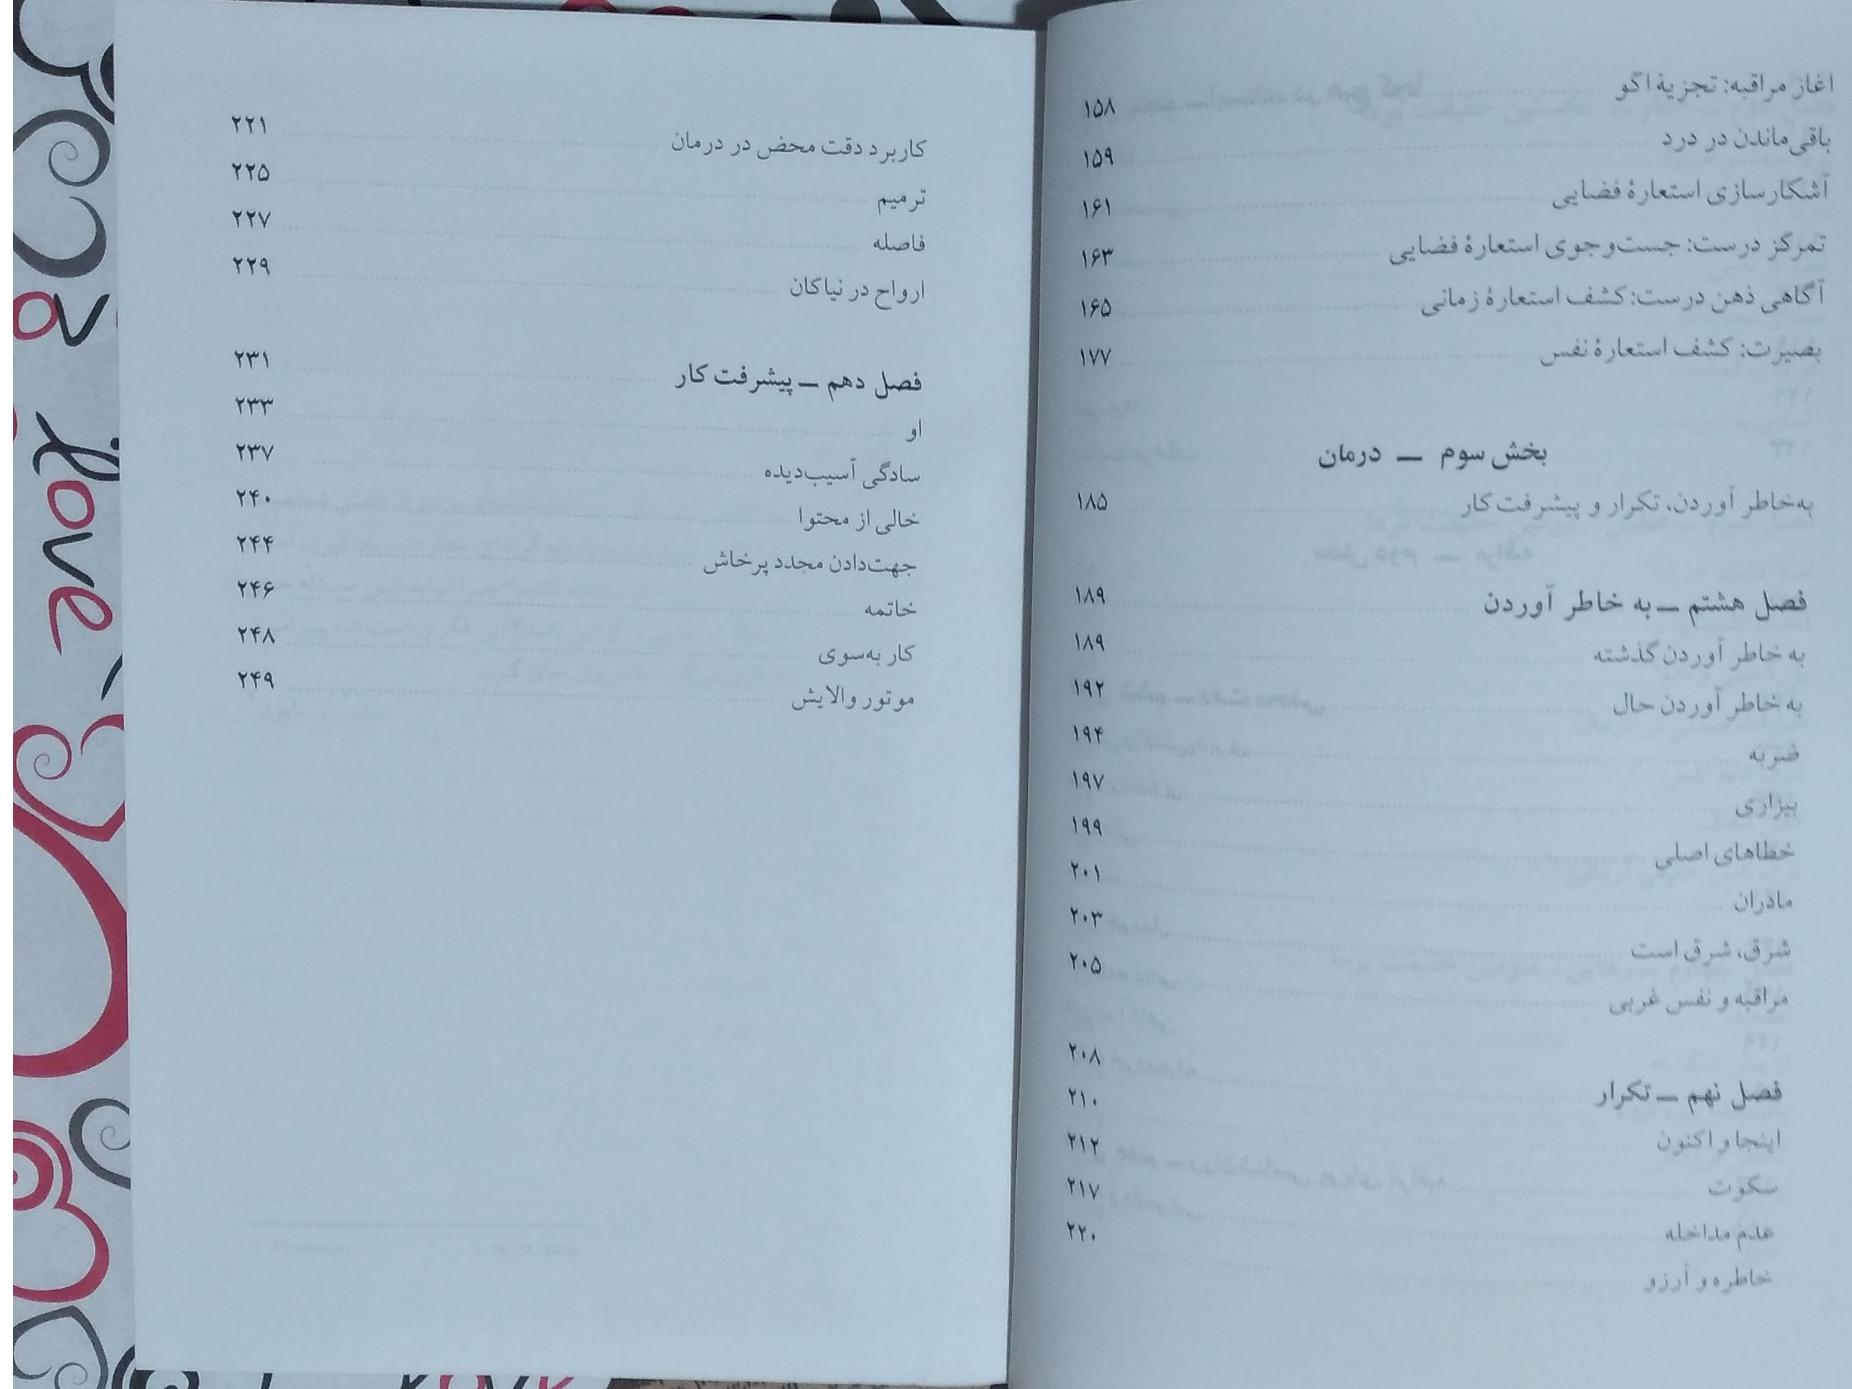 آغاز مراقبه: تجزیهٔ اگو ۱۵۸
باقی‌ماندن در درد ۱۵۹
آشکارسازی استعارهٔ فضایی ۱۶۱
تمرکز درست: جست‌وجوی استعارهٔ فضایی ۱۶۳
آگاهی ذهن درست: کشف استعارهٔ زمانی ۱۶۵
بصیرت: کشف استعارهٔ نفس ۱۷۷
بخش سوم ـ درمان
به‌خاطر آوردن، تکرار و پیشرفت کار ۱۸۵
فصل هشتم ـ به خاطر آوردن ۱۸۹
به خاطر آوردن گذشته ۱۸۹
به خاطر آوردن حال ۱۹۲
ضربه ۱۹۴
بیزاری ۱۹۷
خطاهای اصلی ۱۹۹
مادران ۲۰۱
شرق، شرق است ۲۰۳
مراقبه و نفس غربی ۲۰۵
فصل نهم ـ تکرار ۲۰۸
اینجا و اکنون ۲۱۰
سکوت ۲۱۲
عدم مداخله ۲۱۷
خاطره و آرزو ۲۲۰
کاربرد دقت محض در درمان ۲۲۱
ترمیم ۲۲۵
فاصله ۲۲۷
ارواح در نیاکان ۲۲۹
فصل دهم ـ پیشرفت کار ۲۳۱
او ۲۳۳
سادگی آسیب‌دیده ۲۳۷
خالی از محتوا ۲۴۰
جهت‌دادن مجدد پرخاش ۲۴۴
خاتمه ۲۴۶
کار به‌سوی ۲۴۸
موتور والایش ۲۴۹
love